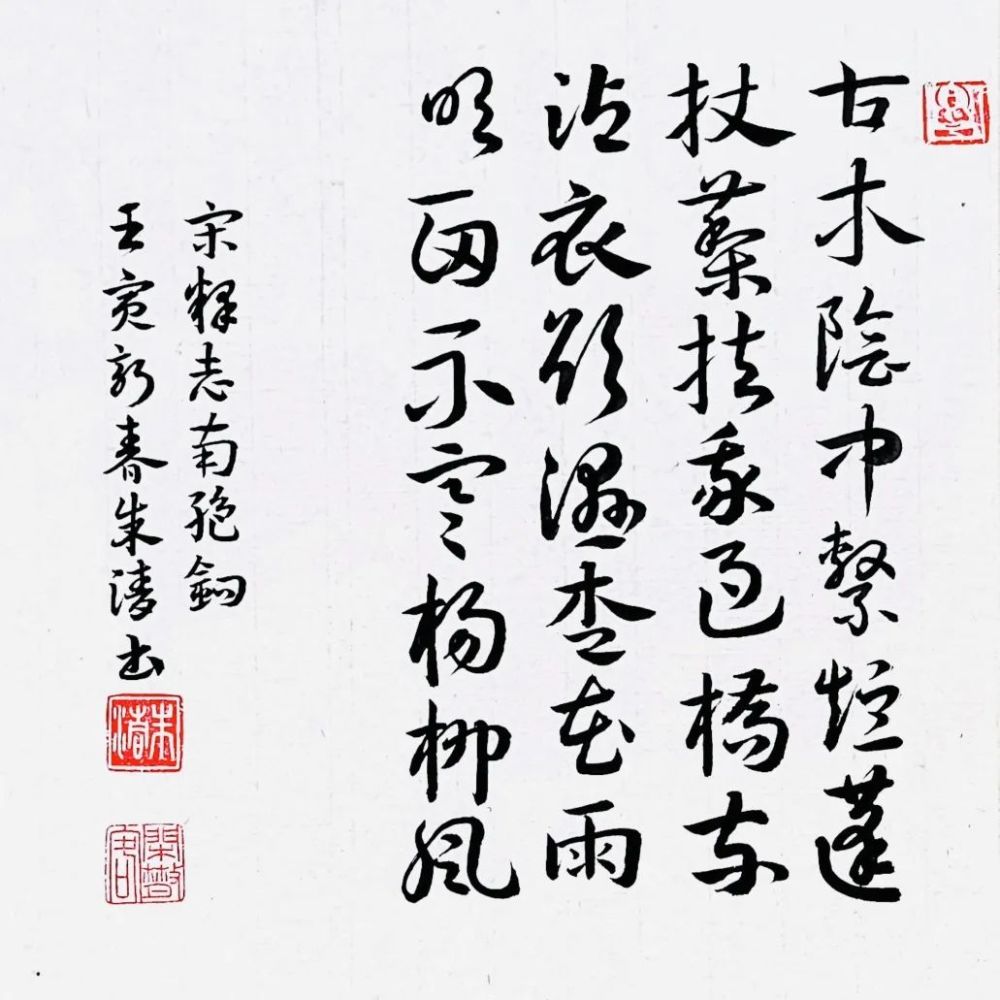 古木陰中繫短蓬
杖藜扶我過橋東
沾衣欲濕杏花雨
吹面不寒楊柳風
宋釋志南絶
壬寅新春朱書